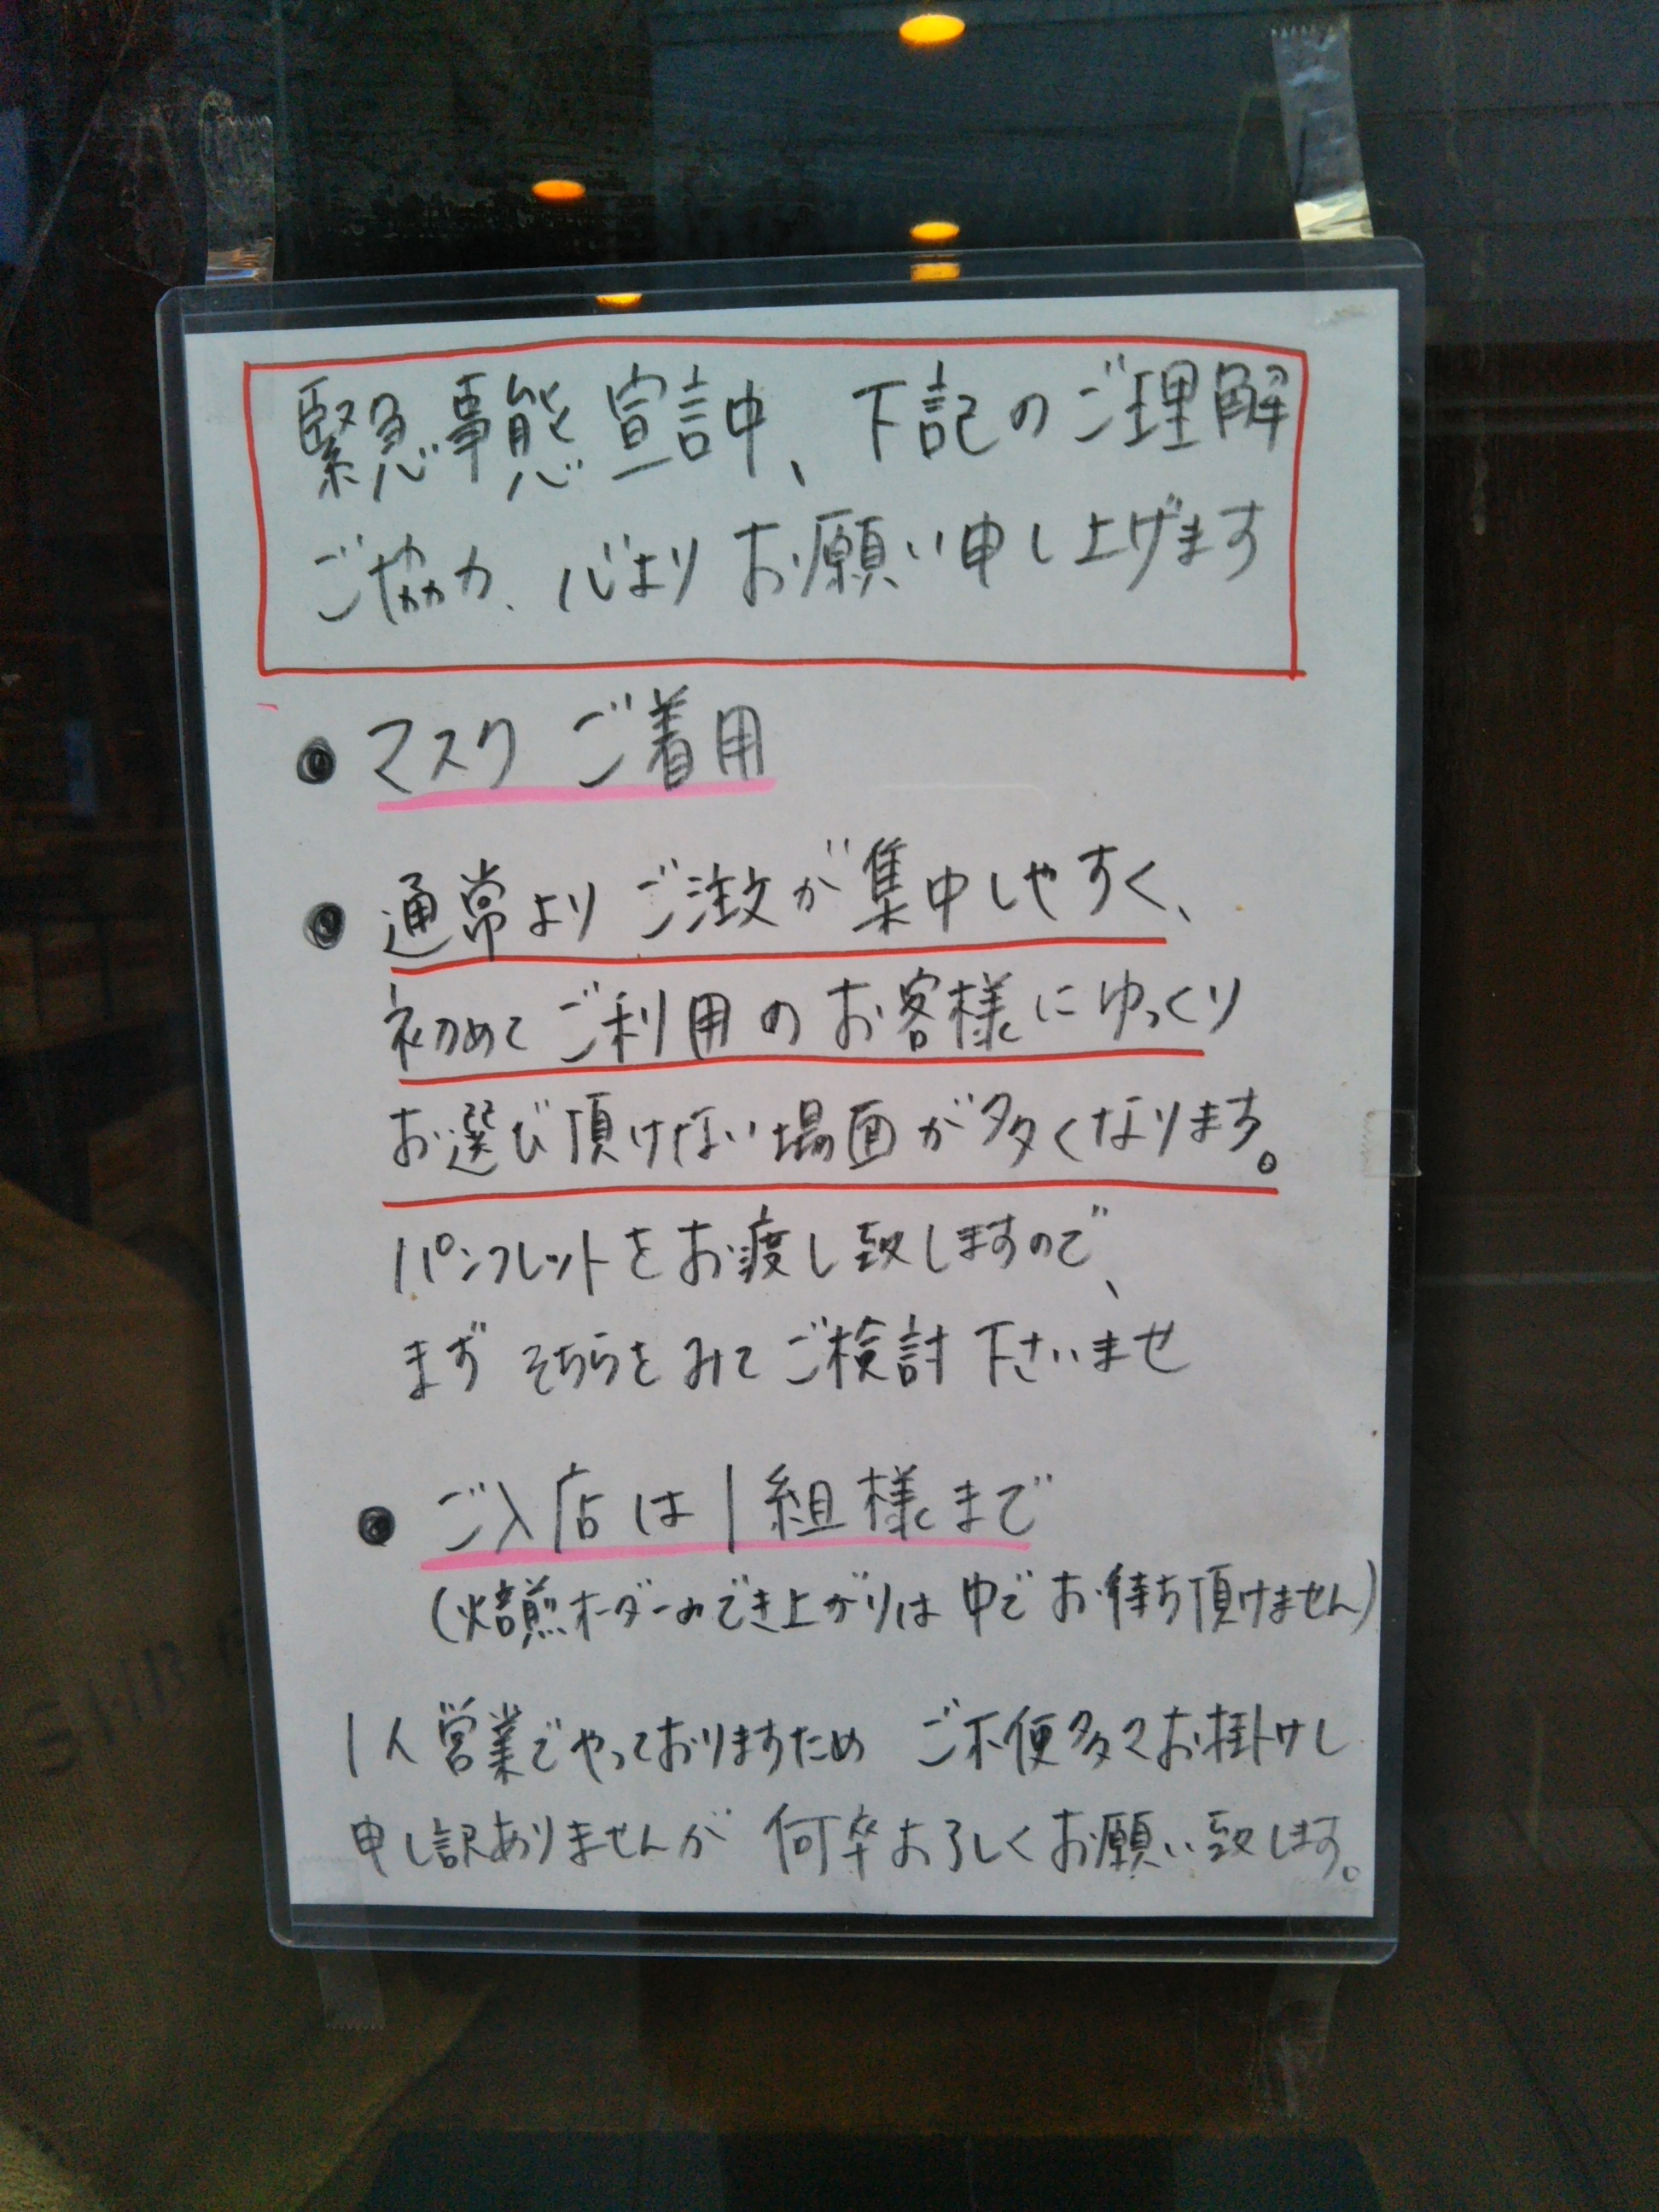 緊急事態宣言中、下記のご理解
ご協力、心よりお願い申し上げます
● マスク ご着用
● 通常より ご注文が集中しやすく、
初めて ご利用の お客様に ゆっくり
お選び頂けない場面が多くなります。
パンフレットをお渡し致しますので、
まず そちらをみて ご検討 下さいませ
● ご入店は1組様まで
(焙煎オーダーのでき上がりは 中で お待ち頂けません)
1人営業でやっておりますため ご不便多々お掛けし
申し訳ありませんが 何卒よろしくお願い致します。
SHB